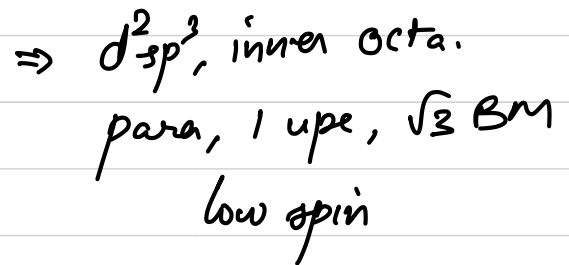 ⇒ d²sp³, inner octa.
para, 1 upe, √3 BM
low spin